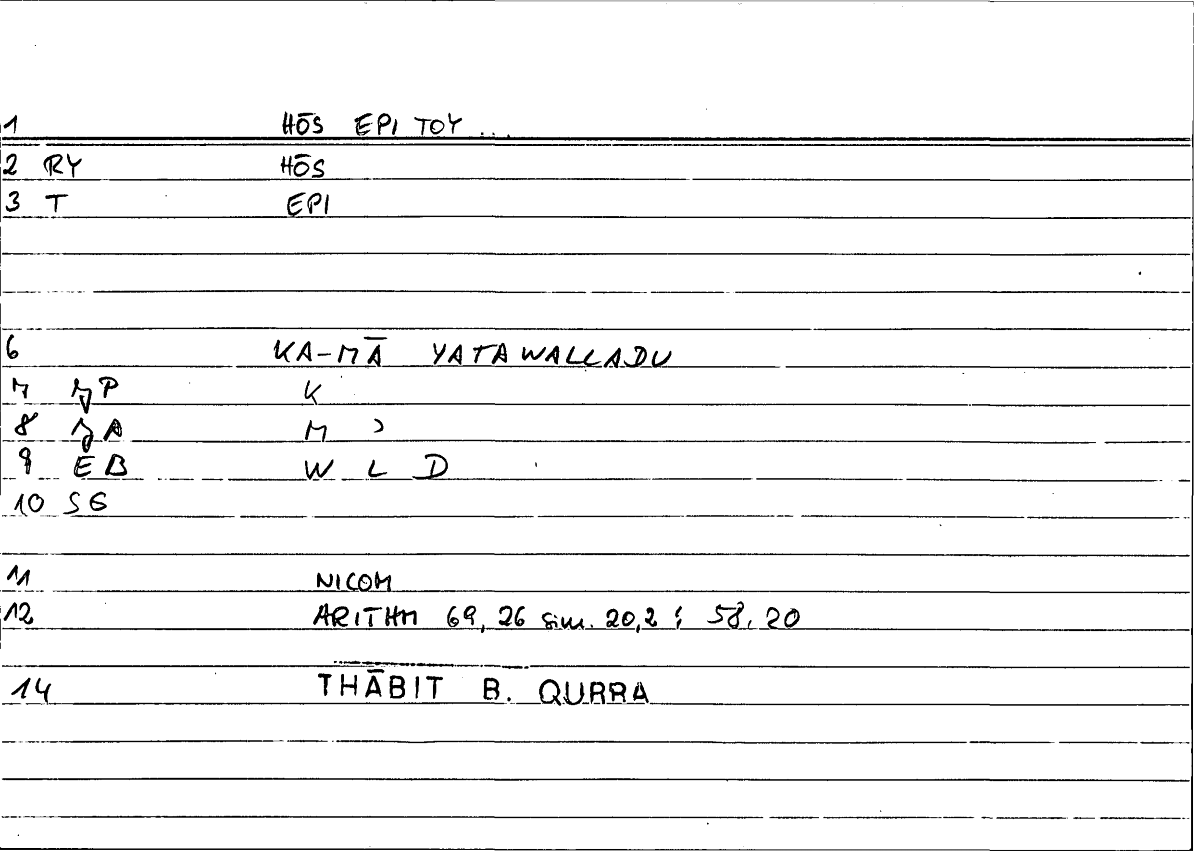 1 HŌS EPI TOY ...
2 RY HŌS
3 T EPI
6 KA-MĀ YATAWALLADU
7 K
8 M ʾ
9 EB W L D
10 SG
11 NICOM
12 ARITHM 69, 26 sim. 20,2 ; 58, 20
14 THĀBIT B. QURRA